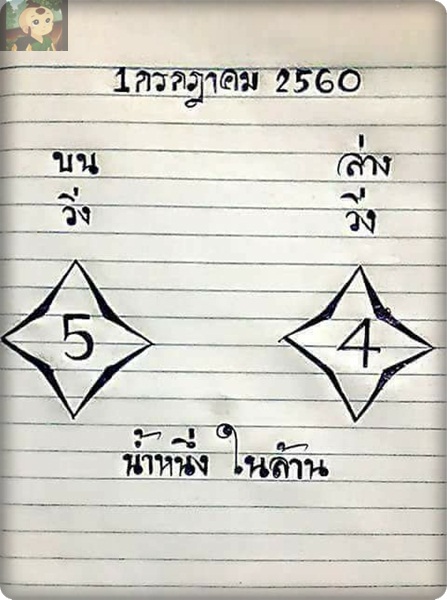 1 กรกฎาคม 2560
บน ล่าง
วิ่ง วิ่ง
5 4
น้ำหนึ่ง ในล้าน